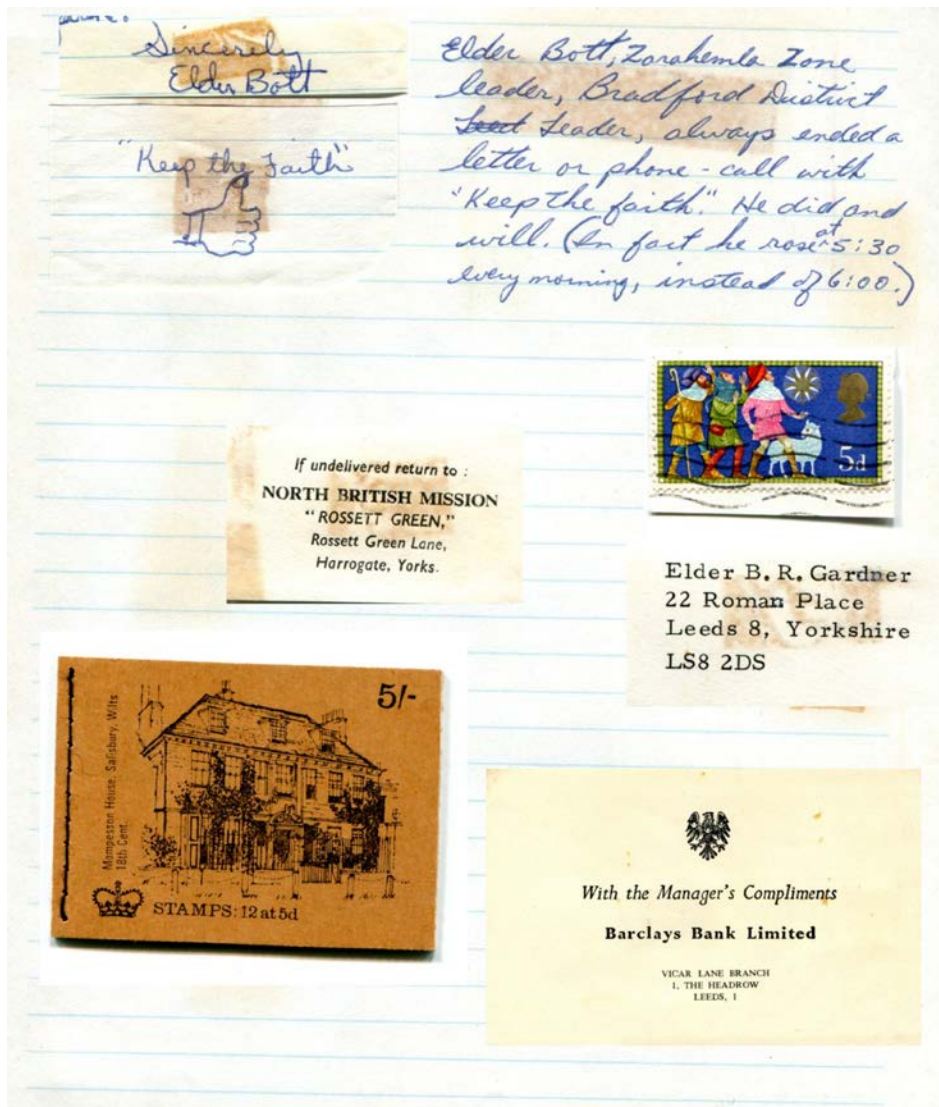 Sincerely
Elder Bott
"Keep the Faith"
Elder Bott, Zarahemla Zone
leader, Bradford District
Leader, always ended a
letter or phone-call with
"Keep the faith." He did and
will. (In fact he rose at 5:30
every morning, instead of 6:00.)
5d
If undelivered return to :
NORTH BRITISH MISSION
"ROSSETT GREEN,"
Rossett Green Lane,
Harrogate, Yorks.
Elder B. R. Gardner
22 Roman Place
Leeds 8, Yorkshire
LS8 2DS
5/-
Mompesson House, Salisbury, Wilts
18th Cent.
STAMPS: 12 at 5d
With the Manager's Compliments
Barclays Bank Limited
VICAR LANE BRANCH
1, THE HEADROW
LEEDS, 1